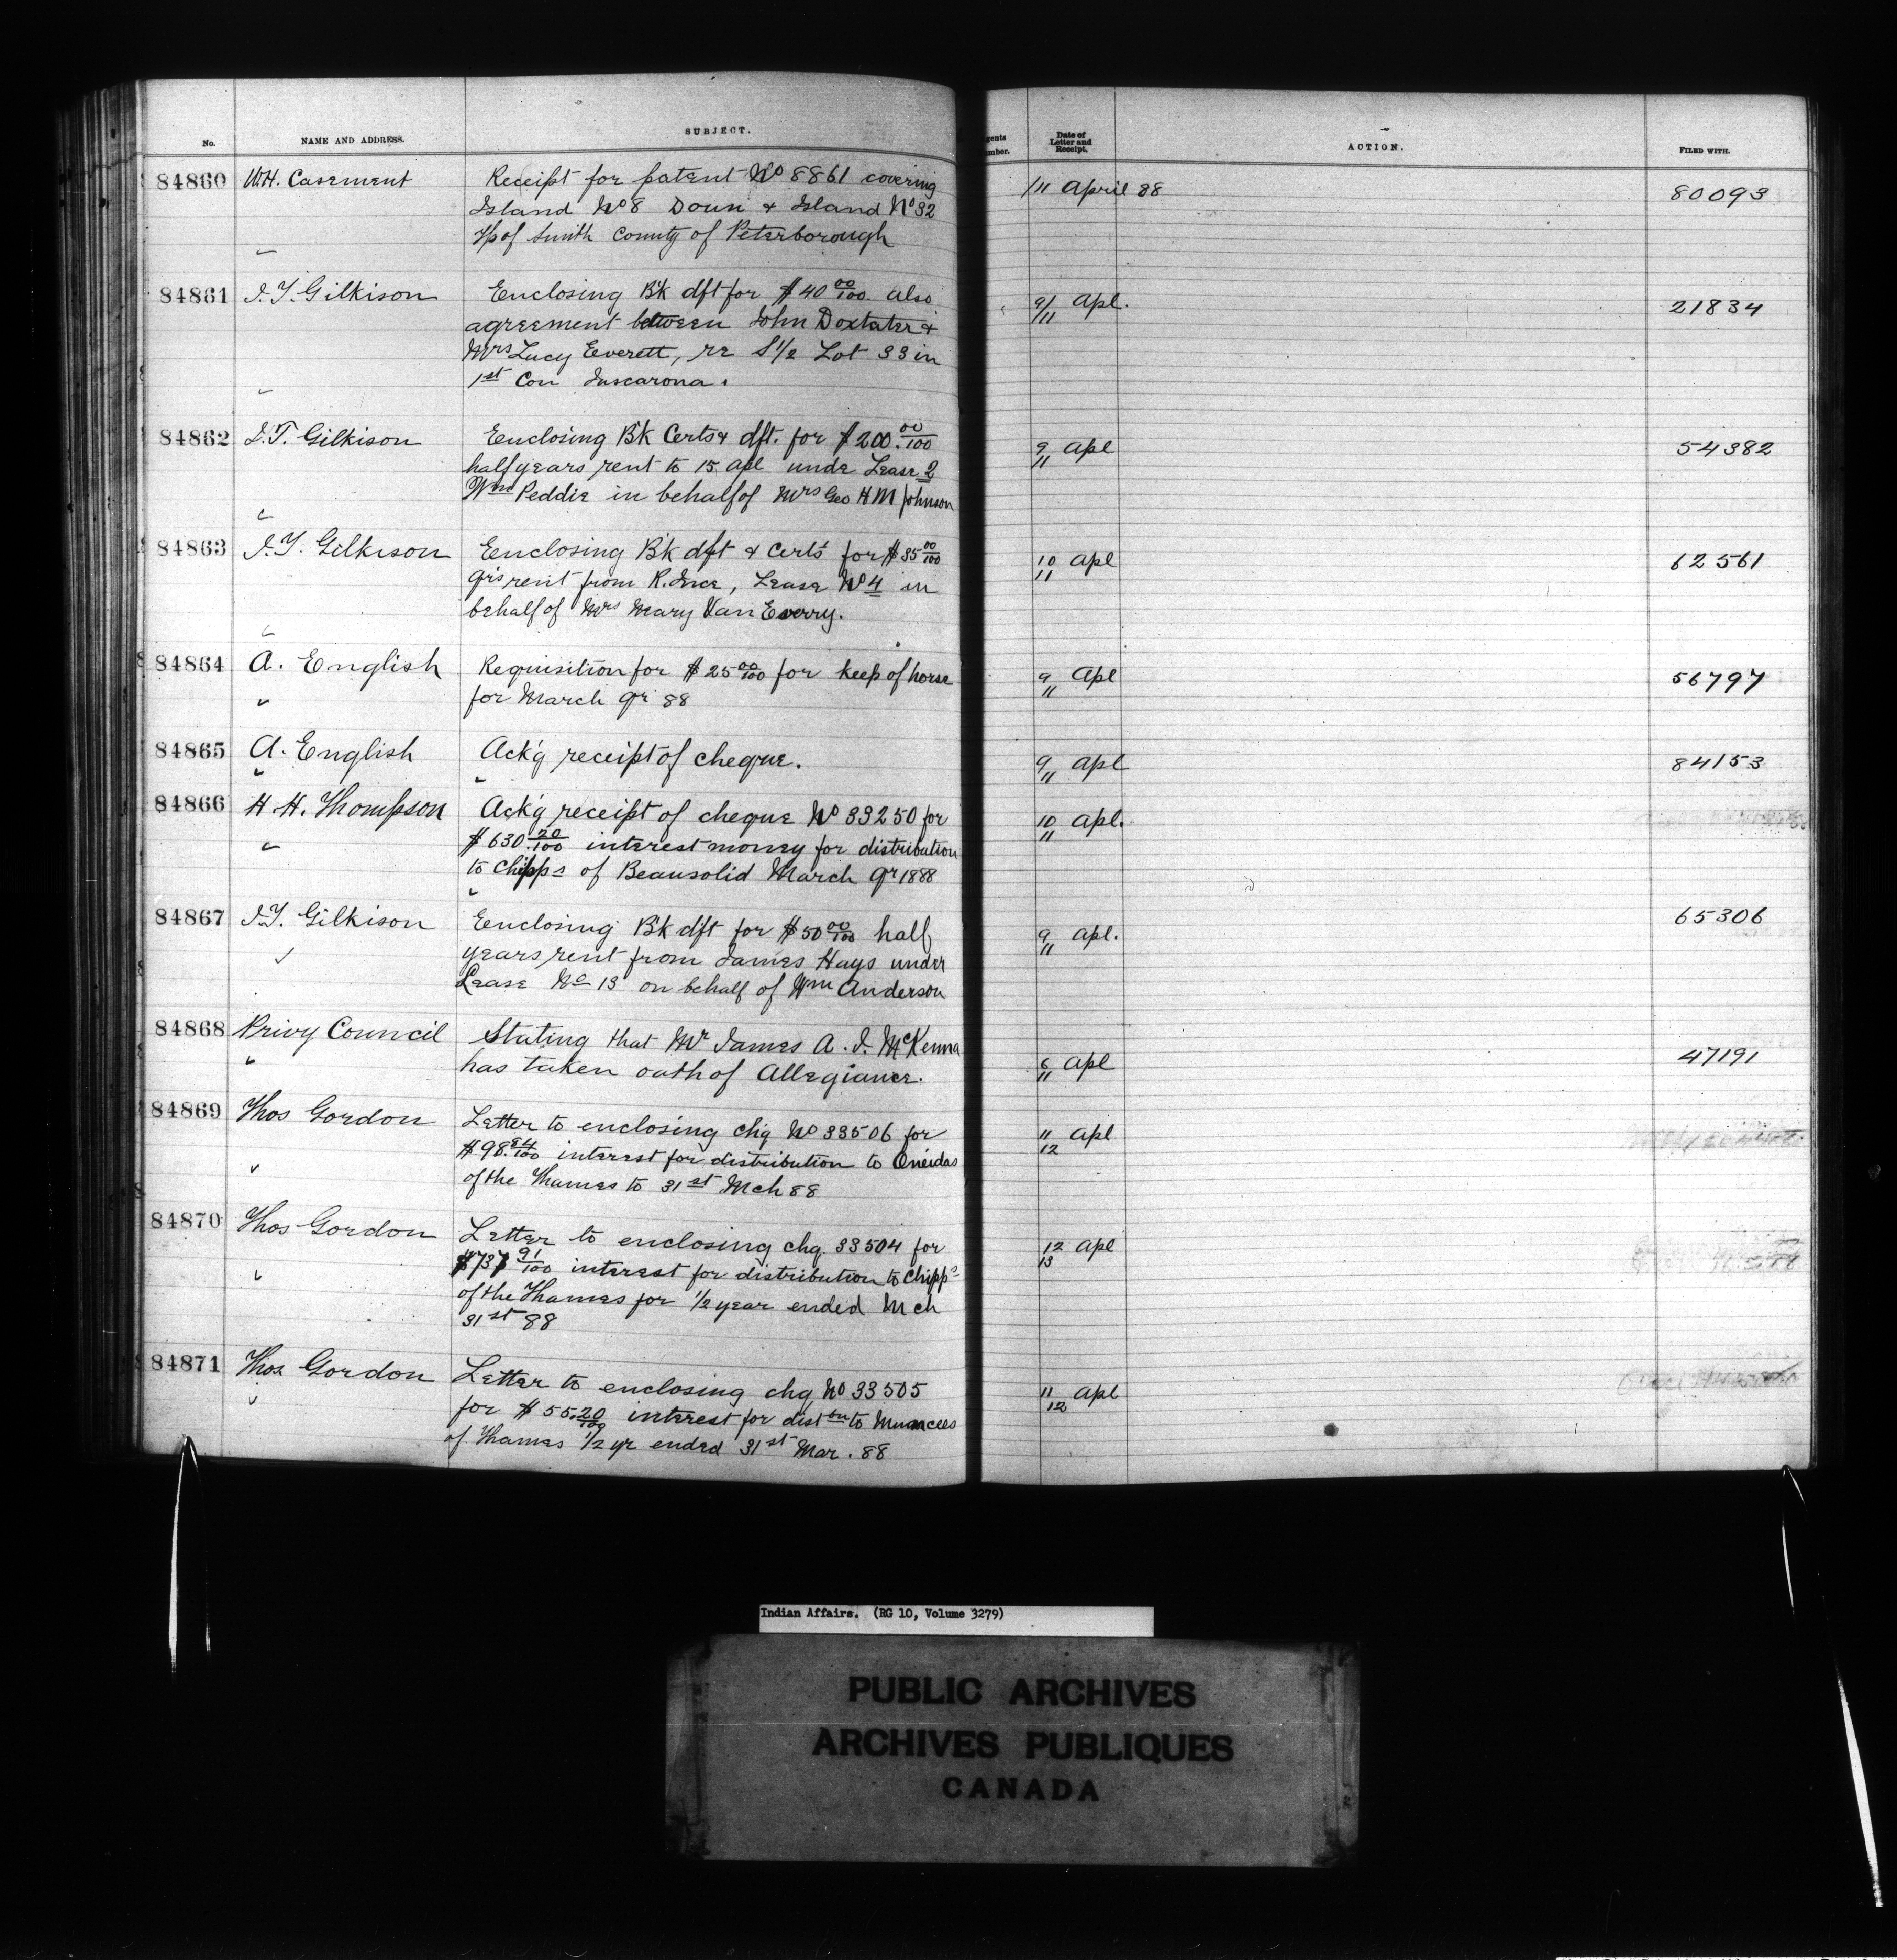 No. NAME AND ADDRESS. SUBJECT.
84860 W.H. Casement Receipt for patent No 8861 covering
Island No 8 Doun & Island No 32
Tp of Smith County of Peterborough
84861 J.T. Gilkison Enclosing B'k dft for $40 00/100. also
agreement between John Doxtater &
Mrs Lucy Everett, re S 1/2 Lot 33 in
1st Con Tuscarora.
84862 J.T. Gilkison Enclosing B'k Certs & dft. for $200. 00/100
half years rent to 15 apl unde Lease 2
Wm Peddie in behalf of Mrs Geo H M Johnson
84863 J.T. Gilkison Enclosing B'k dft & Certs for $35 00/100
qrs rent from R. Ince, Lease No 4 in
behalf of Mrs Mary Van Every.
84864 A. English Requisition for $25 00/100 for keep of horse
for March qr 88
84865 A. English Ack'g receipt of cheque.
84866 H.H. Thompson Ack'g receipt of cheque No 33250 for
$630. 20/100 interest money for distribution
to Chipps of Beausolid March qr 1888
84867 J.T. Gilkison Enclosing B'k dft for $50 00/100 half
years rent from James Hays under
Lease No 13 on behalf of Wm Anderson
84868 Privy Council Stating that Mr James A. J. McKenna
has taken oath of Allegiance.
84869 Thos Gordon Letter to enclosing chq No 33506 for
$98. 84/100 interest for distribution to Oneidas
of the Thames to 31st Mch 88
84870 Thos Gordon Letter to enclosing chq. 33504 for
$737 91/100 interest for distribution to Chipps
of the Thames for 1/2 year ended Mch
31st 88
84871 Thos Gordon Letter to enclosing chq No 33505
for $55. 20/100 interest for distbn to Muncees
of Thames 1/2 yr ended 31st Mar. 88
Date of
Letter and
Receipt. ACTION. FILED WITH.
11 April 88 80093
9/11 Apl. 21834
9/11 Apl 54382
10/11 Apl 62561
9/11 Apl 56797
9/11 Apl 84153
10/11 Apl.
9/11 Apl. 65306
6/11 Apl 47191
11/12 Apl
12/13 Apl
11/12 Apl
Indian Affairs. (RG 10, Volume 3279)
PUBLIC ARCHIVES
ARCHIVES PUBLIQUES
CANADA